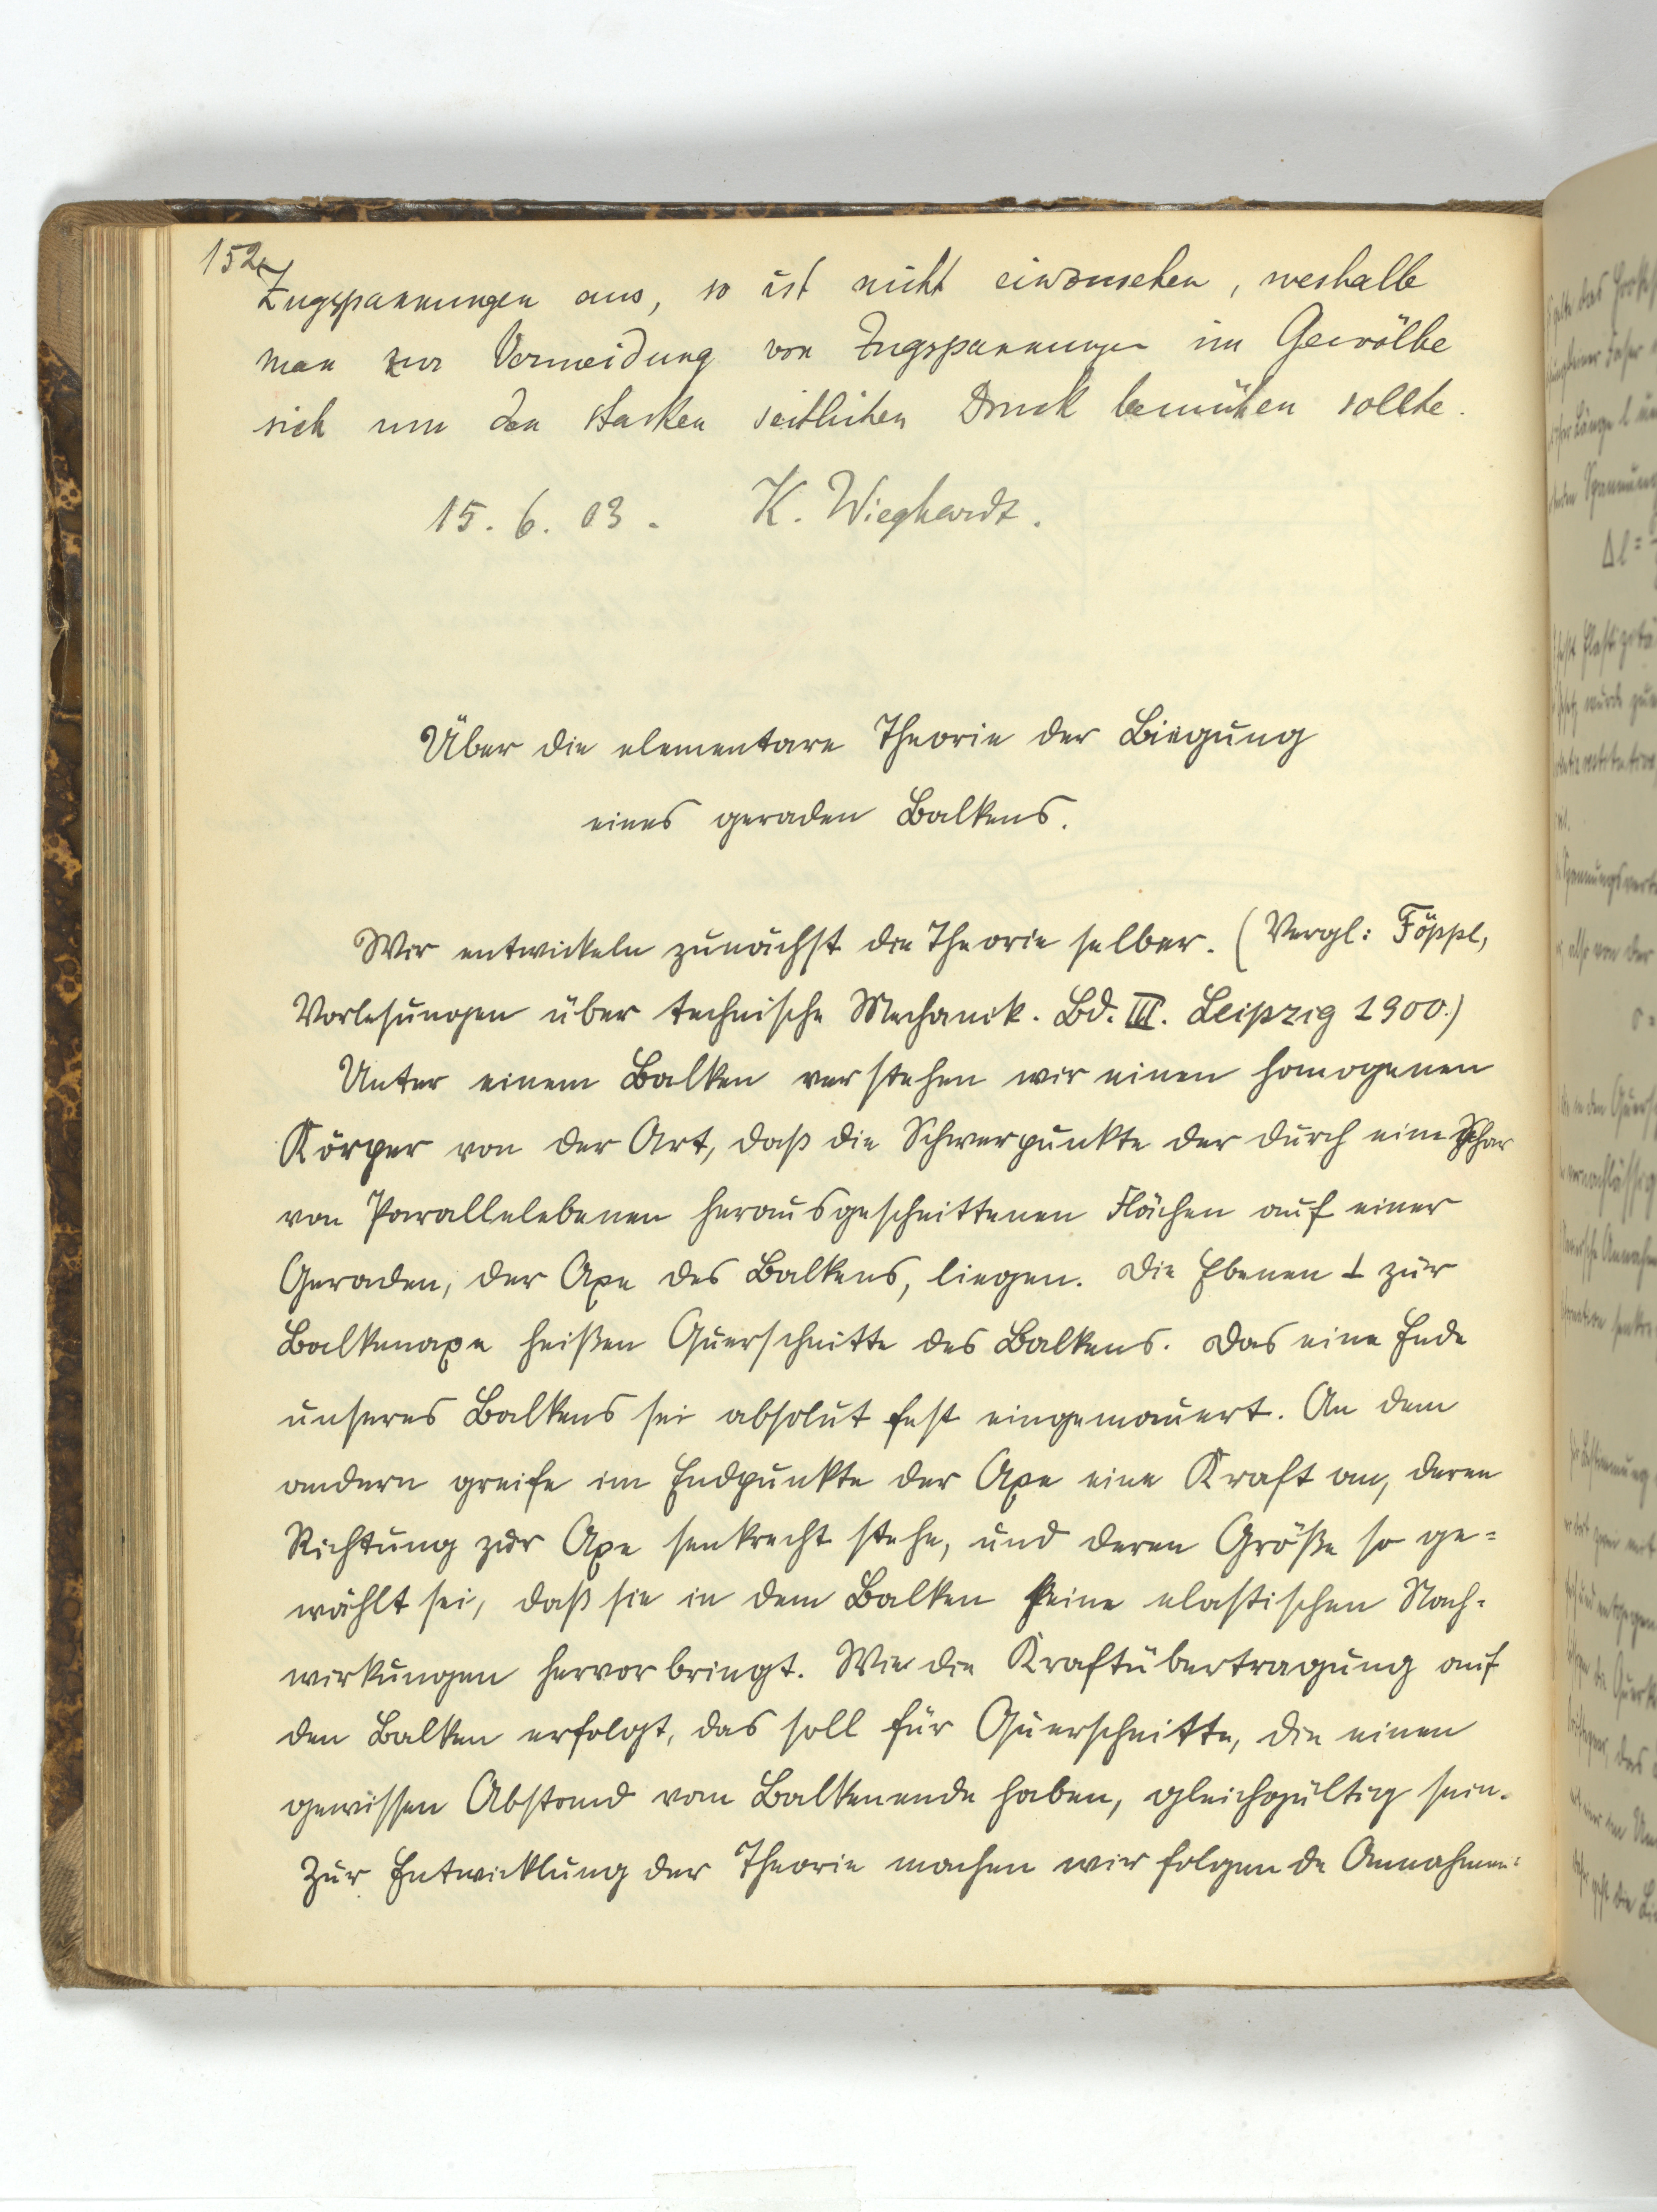 152
Zugspannungen aus, so ist nicht einzusehen, weshalb
man zur Vermeidung von Zugspannungen im Gewölbe
sich um den starken seitlichen Druck bemühen sollte.
15. 6. 03. K. Wieghardt.
Über die elementare Theorie der Biegung
eines geraden Balkens.
Wir entwickeln zunächst die Theorie selber. (Vergl: Föppl,
Vorlesungen über technische Mechanik. Bd. III. Leipzig 1900.)
Unter einem Balken verstehen wir einen homogenen
Körper von der Art, daß die Schwerpunkte der durch eine Schar
von Parallelebenen herausgeschnittenen Flächen auf einer
Geraden, der Axe des Balkens, liegen. Die Ebenen ⊥ zur
Balkenaxe heißen Querschnitte des Balkens. Das eine Ende
unseres Balkens sei absolut fest eingemauert. An dem
andern greife im Endpunkte der Axe eine Kraft an, deren
Richtung zur Axe senkrecht stehe, und deren Größe so ge=
wählt sei, daß sie in dem Balken keine elastischen Nach-
wirkungen hervorbringt. Wie die Kraftübertragung auf
den Balken erfolgt, das soll für Querschnitte, die einen
gewissen Abstand vom Balkenende haben, gleichgültig sein.
Zur Entwicklung der Theorie machen wir folgende Annahmen:
Δl =